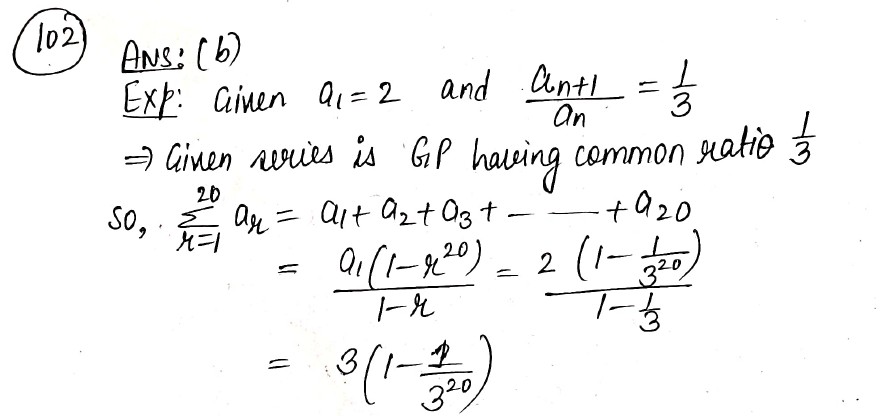 102
Ans: (b)
Exp: Given a₁ = 2 and aₙ₊₁/aₙ = 1/3
⇒ Given series is GP having common ratio 1/3
So, ∑_{r=1}^{20} aᵣ = a₁ + a₂ + a₃ + - — + a₂₀
= a₁(1-r²⁰)/(1-r) = 2(1-1/3²⁰)/(1-1/3)
= 3(1-1/3²⁰)